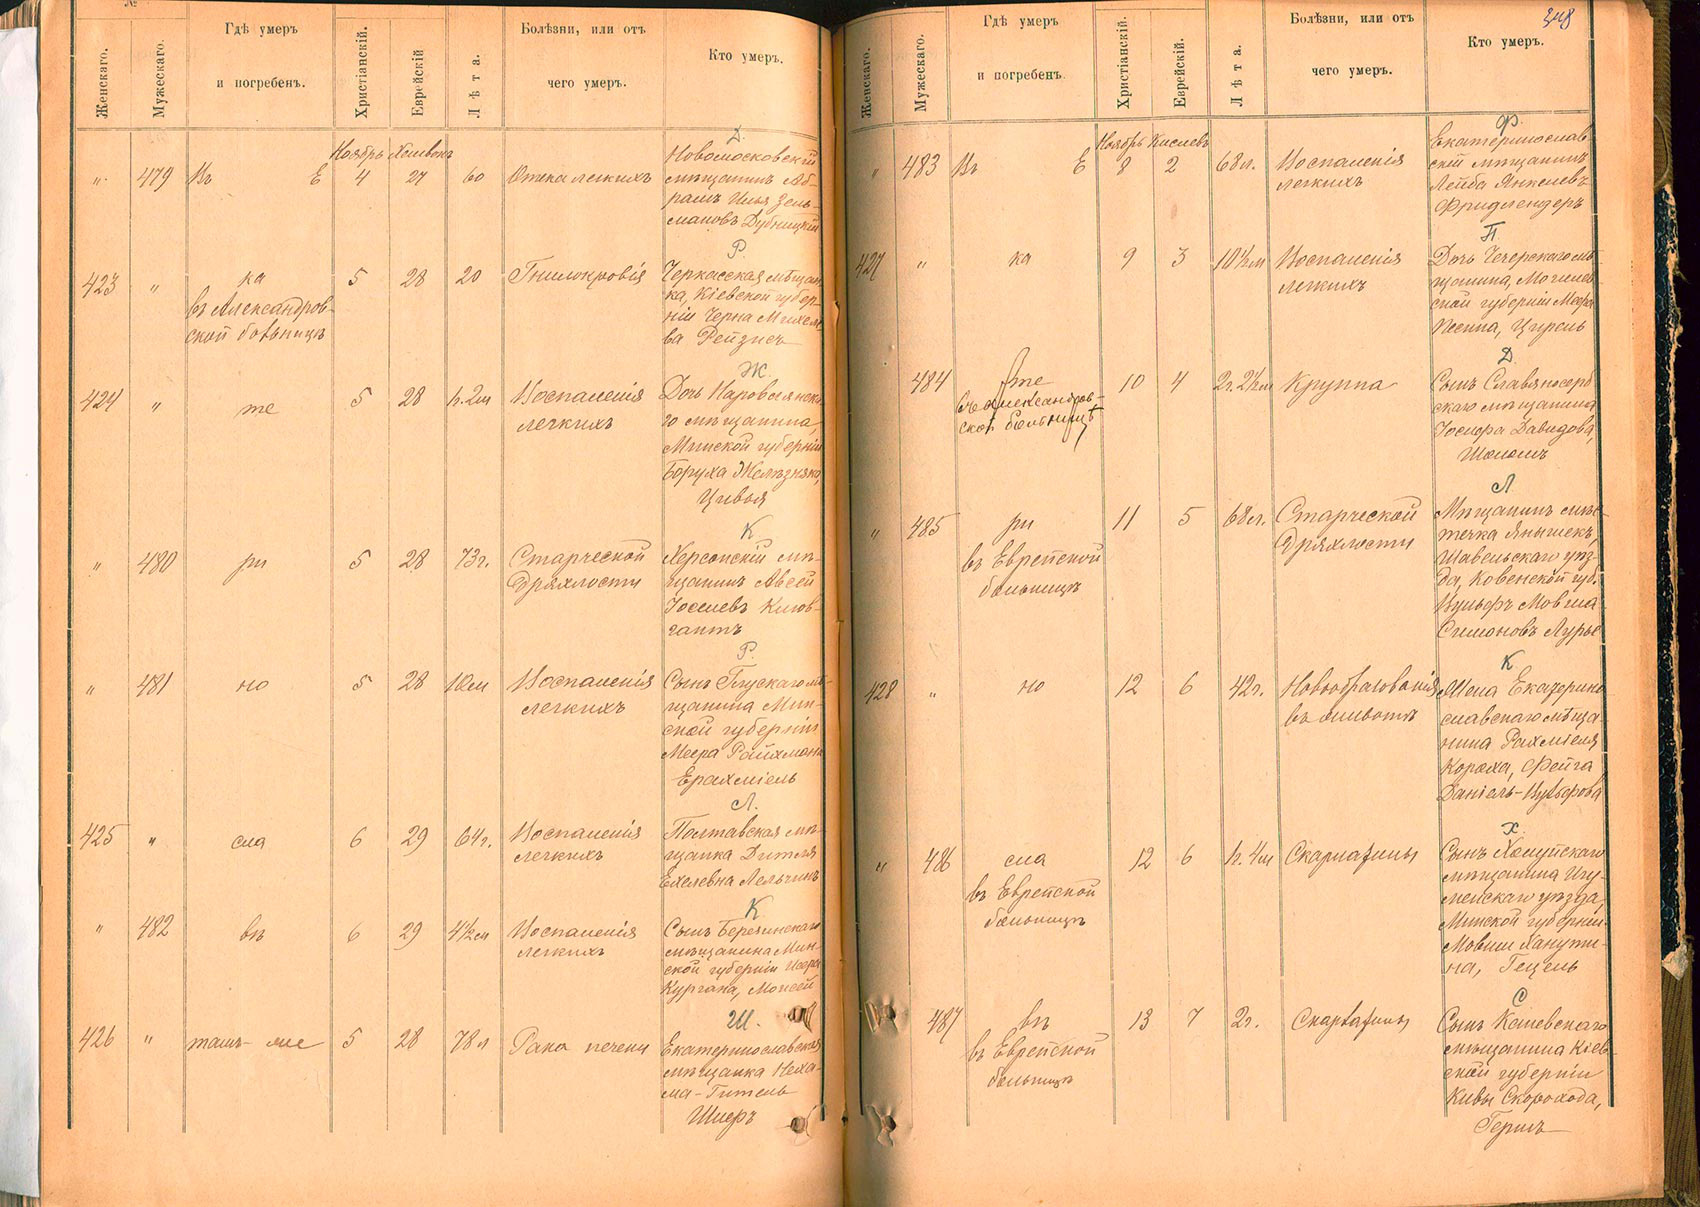 №
Женскаго.
Мужескаго.
Гдѣ умеръ
и погребенъ.
Христіанскій.
Еврейскій
Лѣта.
Болѣзни, или отъ
чего умеръ.
Кто умеръ.
Ноябрь Хешвонъ
" 479 Въ Е 4 27 60 Отека легкихъ
Д.
Новомосковскій
мѣщанинъ Аб-
рамъ Илья Зель-
мановъ Дубницкій
423 " ка 5 28 20 Гнилокровія
въ Александров-
ской больницѣ
Р.
Черкасская мѣщан-
ка, Кіевской губер-
ніи Черна Михеле-
ва Рейзисъ
424 " те 5 28 1г.2м Воспаленія
легкихъ
Ж.
Дочь Наровлянска-
го мѣщанина,
Минской губерніи
Боруха Желѣзняка,
Цивья
" 480 ри 5 28 73г. Старческой
дряхлости
К
Херсонскій мѣ-
щанинъ Авсей
Іоселевъ Клюв-
гантъ
" 481 но 5 28 10м Воспаленія
легкихъ
Р.
Сынъ Глускаго мѣ-
щанина Мин-
ской губерніи
Меера Райхмана
Ерахміель
425 " сла 6 29 64г. Воспаленія
легкихъ
Л.
Полтавская мѣ-
щанка
Ехелевна Лельчинъ
" 482 въ 6 29 4½м Воспаленія
легкихъ
К
Сынъ Березинскаго
мѣщанина Мин-
ской губерніи
Кургана, Моисей
426 " тамъ-же 5 28 78л Рака печени
Ш.
Екатеринославская
мѣщанка Неха-
ма-Гитель
Шифръ
348
Женскаго.
Мужескаго.
Гдѣ умеръ
и погребенъ.
Христіанскій.
Еврейскій.
Лѣта.
Болѣзни, или отъ
чего умеръ.
Кто умеръ.
Ноябрь Кислевъ
" 483 Въ Е 8 2 68л. Воспаленія
легкихъ
Ф.
Екатеринослав-
скій мѣщанинъ
Лейба Янкелевъ
Фридлендеръ
427 " ка 9 3 10½м Воспаленія
легкихъ
П.
Дочь Чечерскаго мѣ-
щанина, Могилев-
ской губерніи Меера
Песина, Цирель
484 те 10 4 2г.2½м Круппа
въ Александров-
ской больницѣ
Д.
Сынъ Славяносерб-
скаго мѣщанина
Іосифа Давидова,
Шоломъ
" 485 ри 11 5 68л. Старческой
дряхлости
въ Еврейской
больницѣ
Л.
Мѣщанинъ мѣс-
течка Янышекъ,
Шавельскаго уѣз-
да, Ковенской губ.
Вульфъ Мовша
Симоновъ Лурье
428 " но 12 6 42г. Новообразованія
въ животѣ
К
Жена Екатерино-
славскаго мѣща-
нина Рахміеля
Кораха, Фейга
Даніель-Вульфова
" 486 сла 12 6 1г.4м Скарлатины
въ Еврейской
больницѣ
Х.
Сынъ Холуйскаго
мѣщанина Игу-
менскаго уѣзда,
Минской губерніи
Мовши Ханути-
на, Гецель
487 въ 13 7 2г. Скарлатины
въ Еврейской
больницѣ
С
Сынъ Кошевскаго
мѣщанина Кіев-
ской губерніи
Кивы Скорохода,
Гершъ